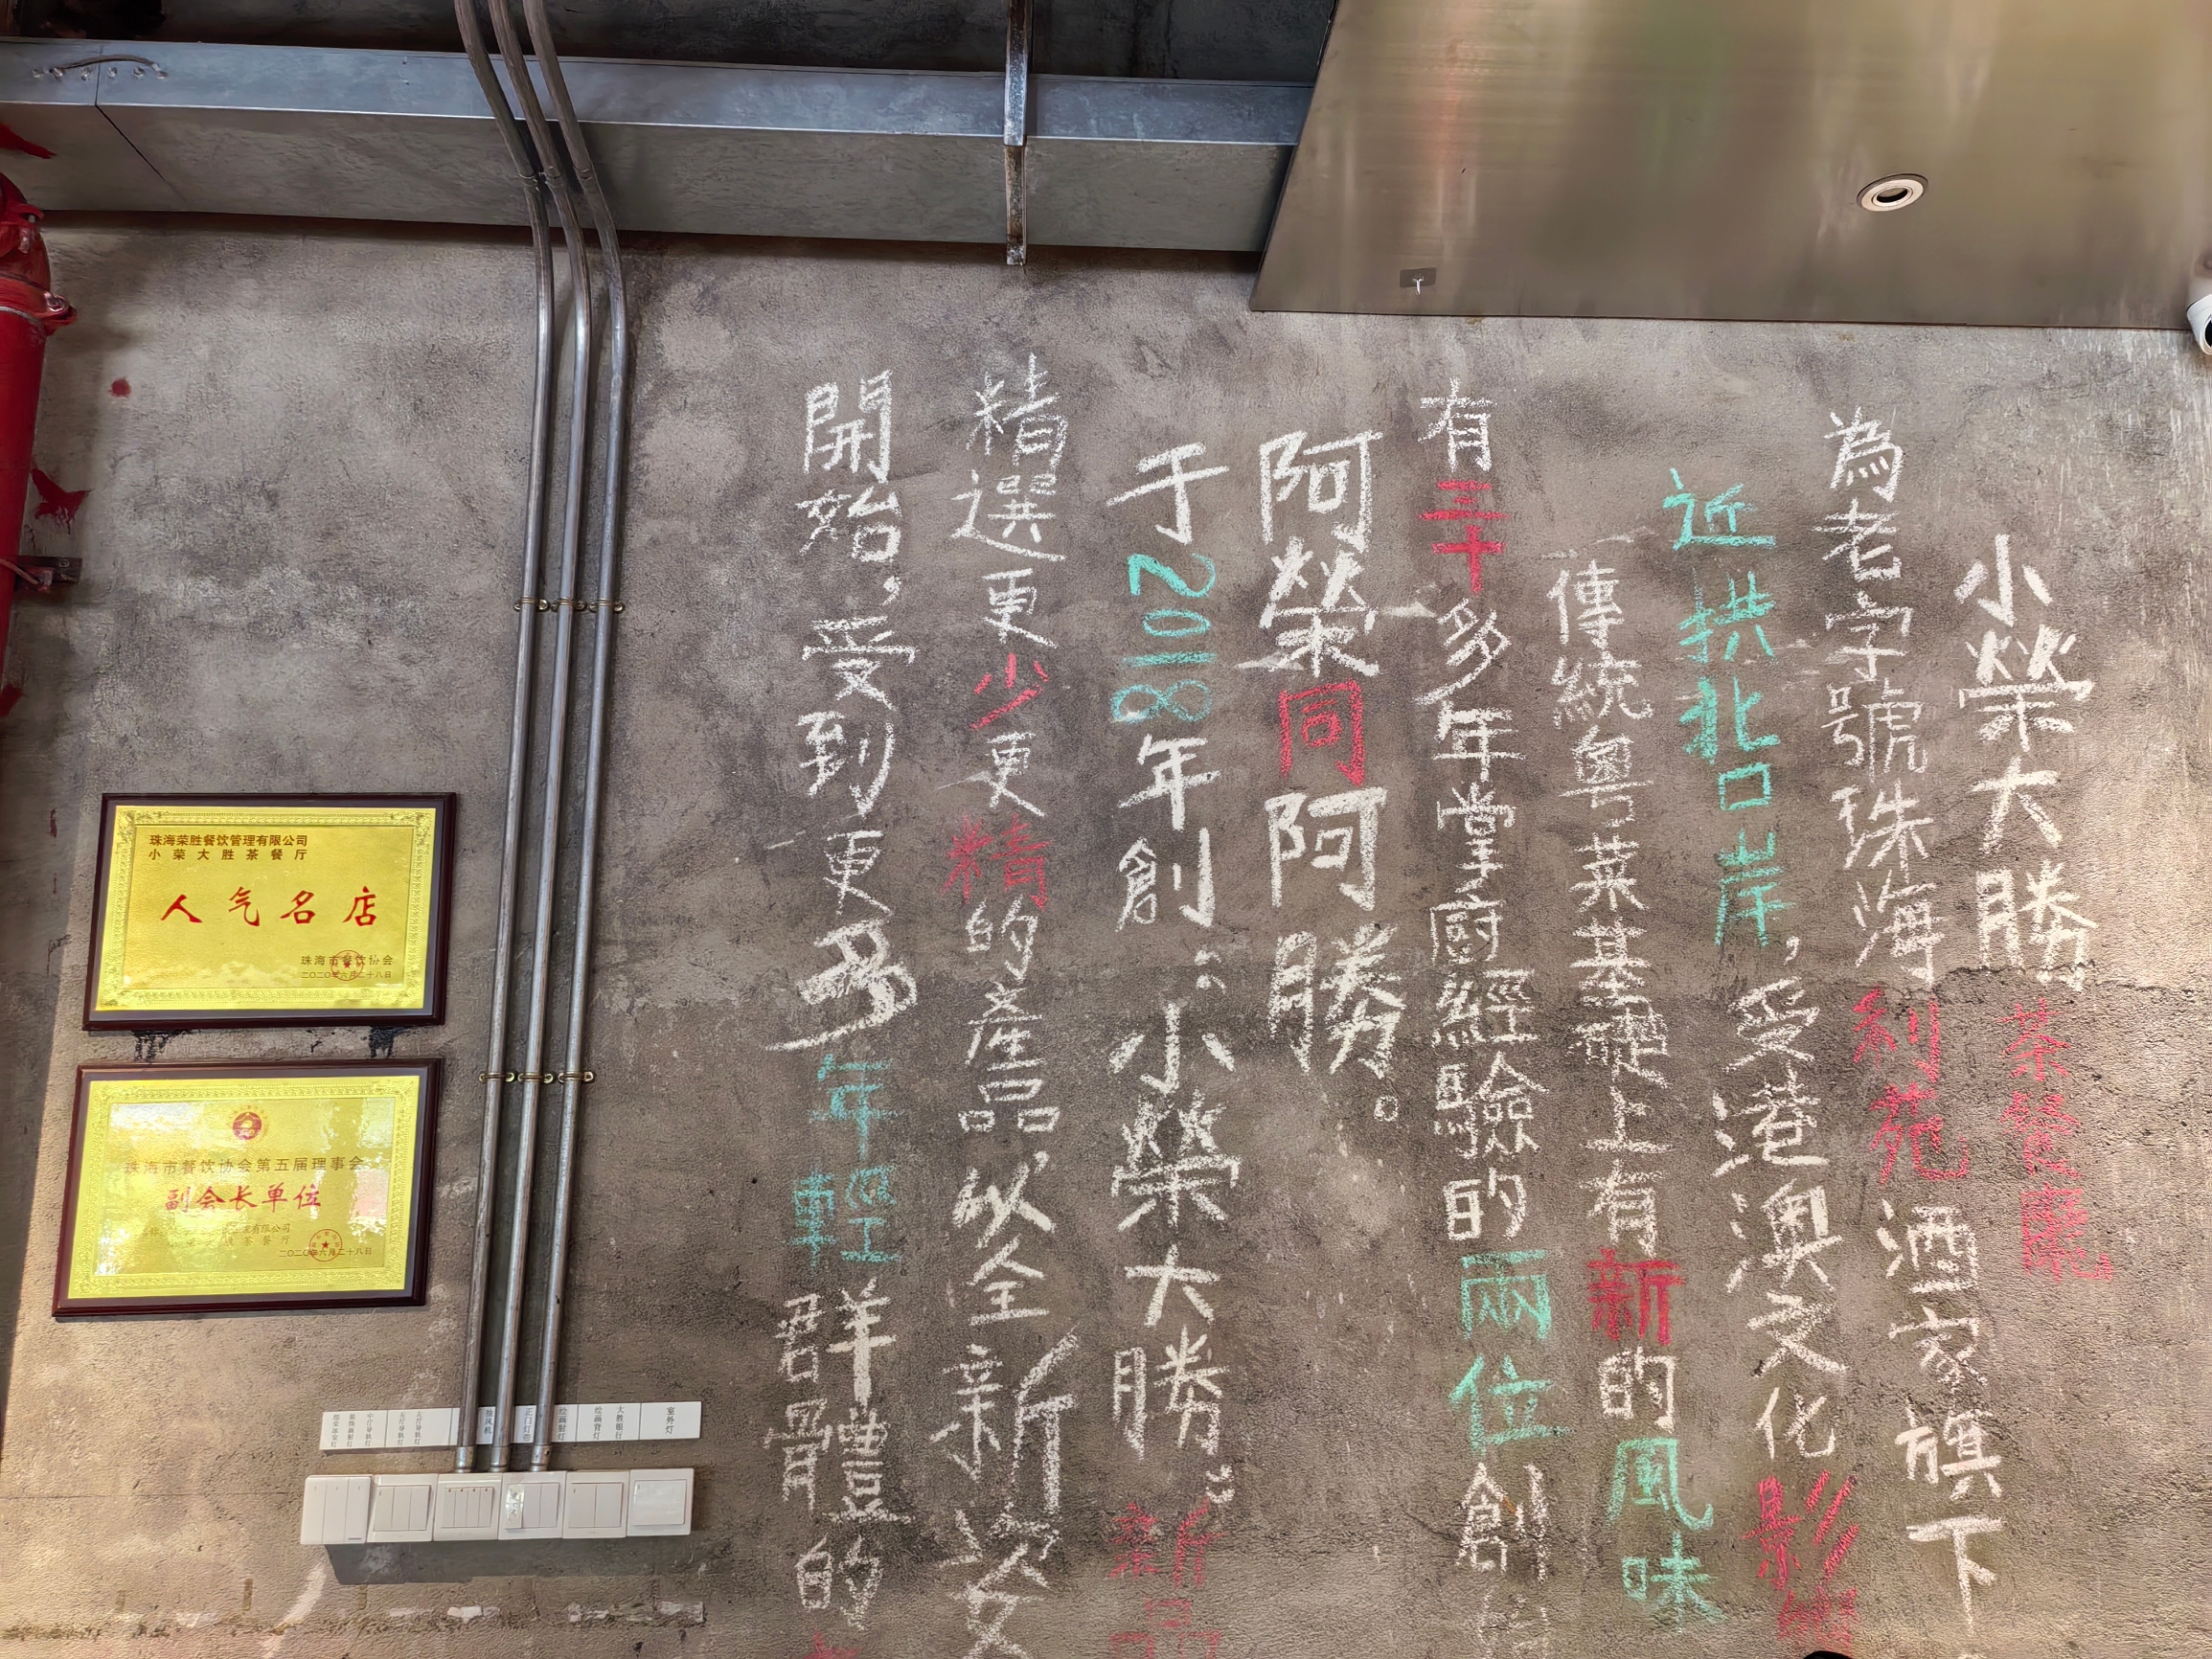 小榮大勝茶餐廳
為老字號珠海利苑酒家旗下
近拱北口岸，受港澳文化影響
傳統粵菜基礎上有新的風味
有三十多年掌廚經驗的兩位創
阿榮同阿勝。
于2018年創：小榮大勝。新品
精選更少更精的產品，以全新姿
開始，受到更多年輕群體的
珠海荣胜餐饮管理有限公司
小荣大胜茶餐厅
人气名店
珠海市餐饮协会
二〇二〇年六月二十八日
珠海市餐饮协会第五届理事会
副会长单位
有限公司
茶餐厅
二〇二〇年六月二十八日
室外灯